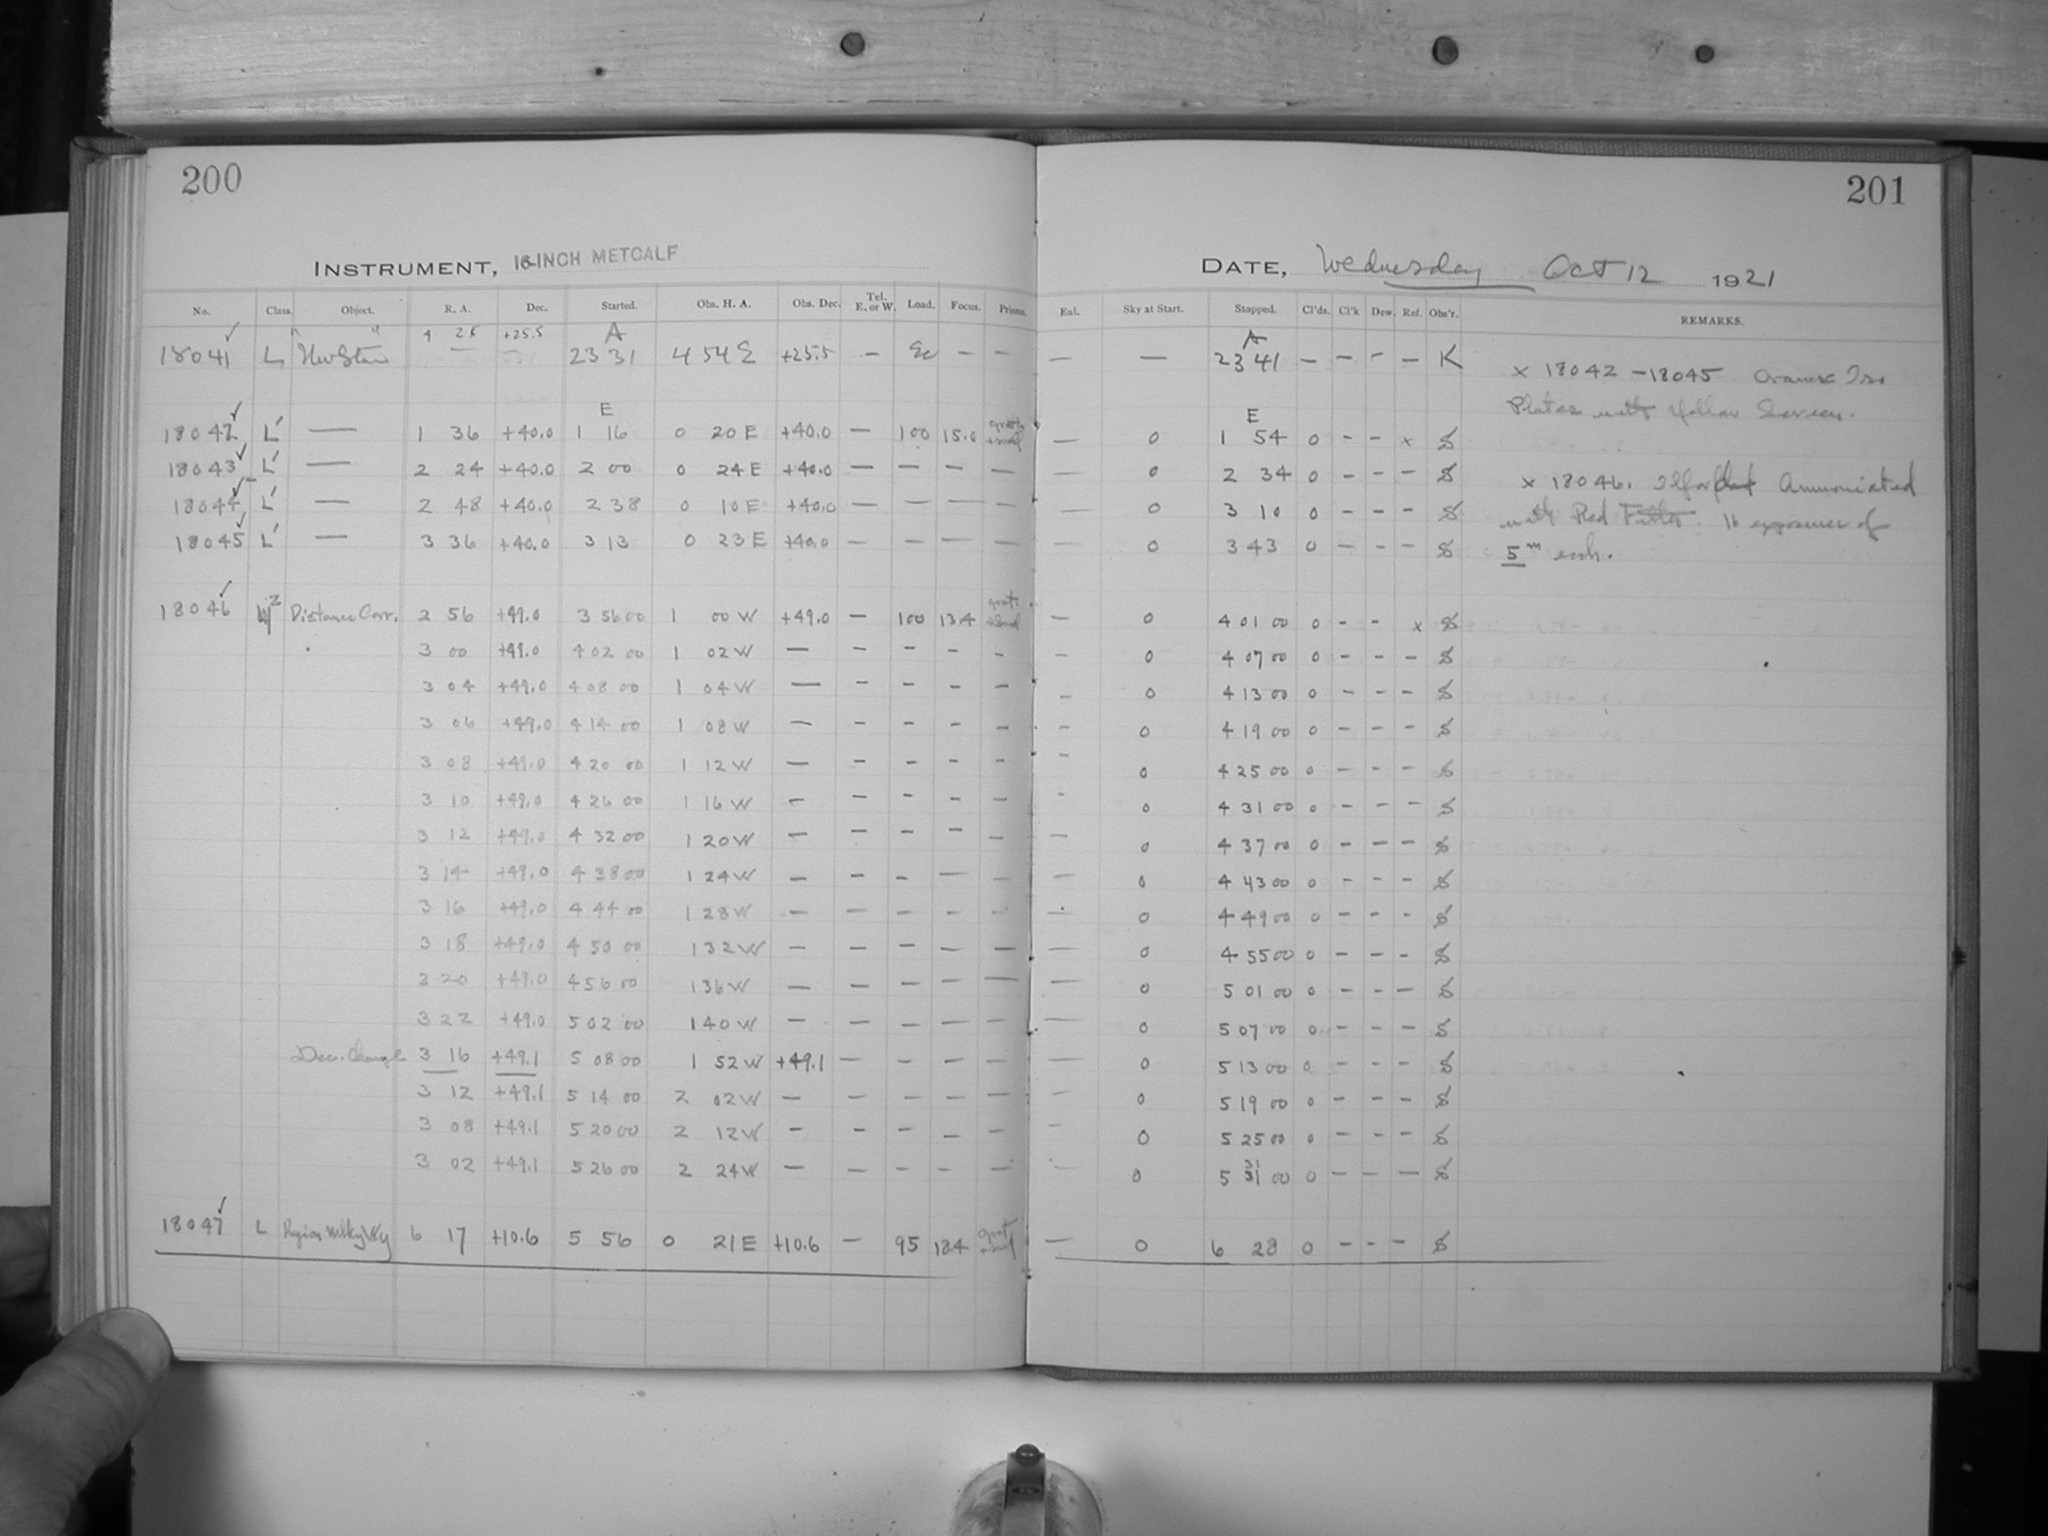 200
201
INSTRUMENT, 16-INCH METCALF
DATE, Wednesday Oct 12 1921
No. Class. Object. R. A. Dec. Started. Obs. H. A. Obs. Dec. Tel. E. or W. Load. Focus. Prisms. Eul. Sky at Start. Stopped. Cl'ds. Cl'k Dew. Ref. Obs'r. REMARKS.
" " 4 25 +25.5 A A
18041 L New Star — — 23 31 4 54 E +25.5 — — — — — 23 41 — — — — K
x 18042 - 18045 Cramer Iso
Plates with Yellow Screen.
E E
18042 L' — 1 36 +40.0 1 16 0 20 E +40.0 — 100 15.0 — 0 1 54 0 - - x S
18043 L' — 2 24 +40.0 2 00 0 24 E +40.0 — — — — — 0 2 34 0 - - - S
x 18046. Ilford Ammoniated
18044 L' — 2 48 +40.0 2 38 0 10 E +40.0 — — — — — 0 3 10 0 - - - S
with Red Filter. 16 exposures of
18045 L' — 3 36 +40.0 3 13 0 23 E +40.0 — — — — — 0 3 43 0 - - - S
5 m each.
18046 Distance Corr. 2 56 +49.0 3 56 00 1 00 W +49.0 — 100 13.4 — 0 4 01 00 0 - - x S
3 00 +49.0 4 02 00 1 02 W — - - - - - 0 4 07 00 0 - - - S
3 04 +49.0 4 08 00 1 04 W — - - - - - 0 4 13 00 0 - - - S
3 06 +49.0 4 14 00 1 08 W — - - - - - 0 4 19 00 0 - - - S
3 08 +49.0 4 20 00 1 12 W — - - - - - 0 4 25 00 0 - - - S
3 10 +49.0 4 26 00 1 16 W — - - - - - 0 4 31 00 0 - - - S
3 12 +49.0 4 32 00 1 20 W — - - - - - 0 4 37 00 0 - - - S
3 14 +49.0 4 38 00 1 24 W — - - - - - 0 4 43 00 0 - - - S
3 16 +49.0 4 44 00 1 28 W — - - - - - 0 4 49 00 0 - - - S
3 18 +49.0 4 50 00 1 32 W — - - - - - 0 4 55 00 0 - - - S
3 20 +49.0 4 56 00 1 36 W — - - - - - 0 5 01 00 0 - - - S
3 22 +49.0 5 02 00 1 40 W — - - - - - 0 5 07 00 0 - - - S
Dec. Change 3 16 +49.1 5 08 00 1 52 W +49.1 - - - - - 0 5 13 00 0 - - - S
3 12 +49.1 5 14 00 2 02 W — - - - - - 0 5 19 00 0 - - - S
3 08 +49.1 5 20 00 2 12 W — - - - - - 0 5 25 00 0 - - - S
3 02 +49.1 5 26 00 2 24 W — - - - - - 0 5 31 00 0 - - - S
18047 L Region Milky Way 6 17 +10.6 5 56 0 21 E +10.6 — 95 13.4 — 0 6 28 0 - - - S